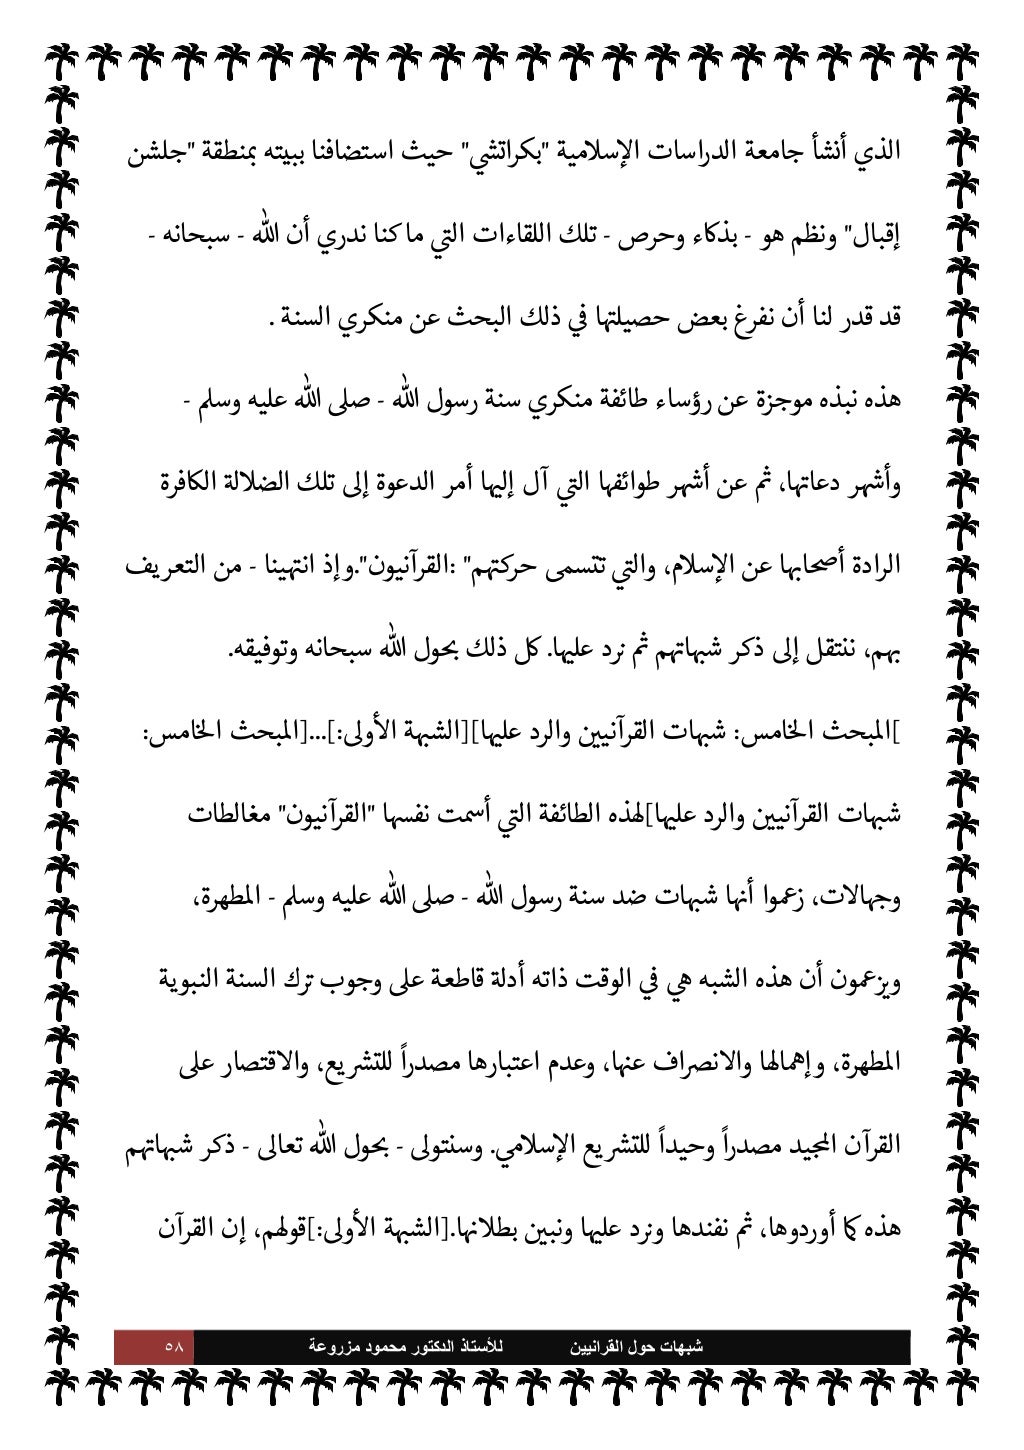 الذي أنشأ جامعة الدراسات الإسلامية "بكراتشي" حيث استضافنا ببيته بمنطقة "جلشن
إقبال" ونظم هو - بذكاء وحرص - تلك اللقاءات التي ما كنا ندري أن الله - سبحانه -
قد قدر لنا أن نفرغ بعض حصيلتها في ذلك البحث عن منكري السنة .
هذه نبذه موجزة عن رؤساء طائفة منكري سنة رسول الله - صلى الله عليه وسلم -
وأشهر دعاتها، ثم عن أشهر طوائفها التي آل إليها أمر الدعوة إلى تلك الضلالة الكافرة
الرادة أصحابها عن الإسلام، والتي تتسمى حركتهم" :القرآنيون".وإذ انتهينا - من التعريف
بهم، ننتقل إلى ذكر شبهاتهم ثم نرد عليها. كل ذلك بحول الله سبحانه وتوفيقه.
]المبحث الخامس: شبهات القرآنيين والرد عليها][الشبهة الأولى:]...[المبحث الخامس:
شبهات القرآنيين والرد عليها]لهذه الطائفة التي أسمت نفسها "القرآنيون" مغالطات
وجهالات، زعموا أنها شبهات ضد سنة رسول الله - صلى الله عليه وسلم - المطهرة،
ويزعمون أن هذه الشبه هي في الوقت ذاته أدلة قاطعة على وجوب ترك السنة النبوية
المطهرة، وإهمالها والانصراف عنها، وعدم اعتبارها مصدراً للتشريع، والاقتصار على
القرآن المجيد مصدراً وحيداً للتشريع الإسلامي. وسنتولى - بحول الله تعالى - ذكر شبهاتهم
هذه كما أوردوها، ثم نفندها ونرد عليها ونبين بطلانها.[الشبهة الأولى:]قولهم، إن القرآن
شبهات حول القرانيين للأستاذ الدكتور محمود مزروعة ٥٨